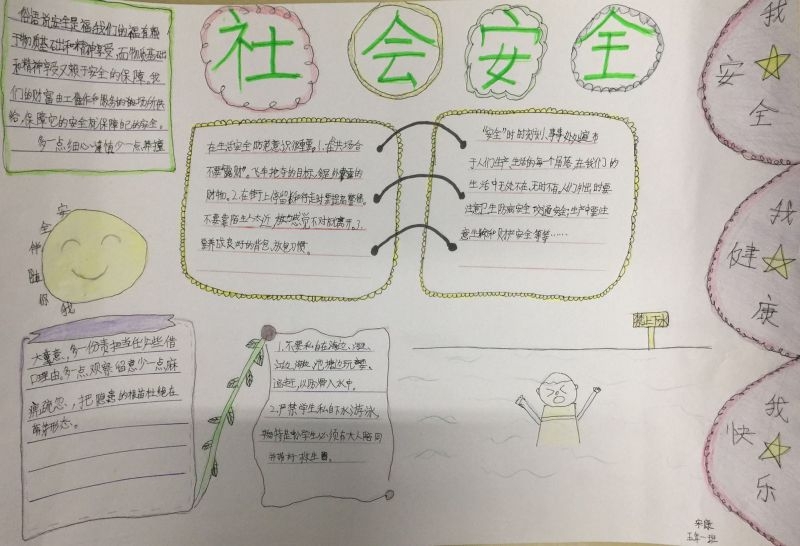 社会安全
俗语说安全是福,我们的福有赖
于物质基础和精神享受,而物质基础
和精神享受又赖于安全的保障。我
们的财富由工作和服务的场所供
给,保障它的安全就保障自己的安全。
多一点细心谨慎少一点莽撞
在生活安全防范意识很重要。1.在公共场合
不要"露财"。飞车抢夺的目标,都是外露的
财物。2.在街上停留和行走时要提高警惕。
不要靠陌生人太近,感觉不对就离开。3.
要养成良好的背包、放包习惯。
"安全"时时刻刻、事事处处遍布
于人们生产、生活的每个角落,在我们的
生活中无处不在,无时不有。人们外出时要
注意卫生防病安全、交通安全;生产中要注
意生命和财产安全等等……
我
安
全
我
健
康
我
快
乐
安
全
伴
随
你
我
大意,多一份责担当任少些借
口理由。多一点观察留意少一点麻
痹疏忽,把隐患的根苗杜绝在
萌芽形态。
1.不要私自在海边、
江边、湖边、池塘边玩耍、
追赶,以防滑入水中。
2.严禁学生私自下水游泳,
特别是小学生必须有大人陪同
并带好救生圈。
禁止下水
五年一班